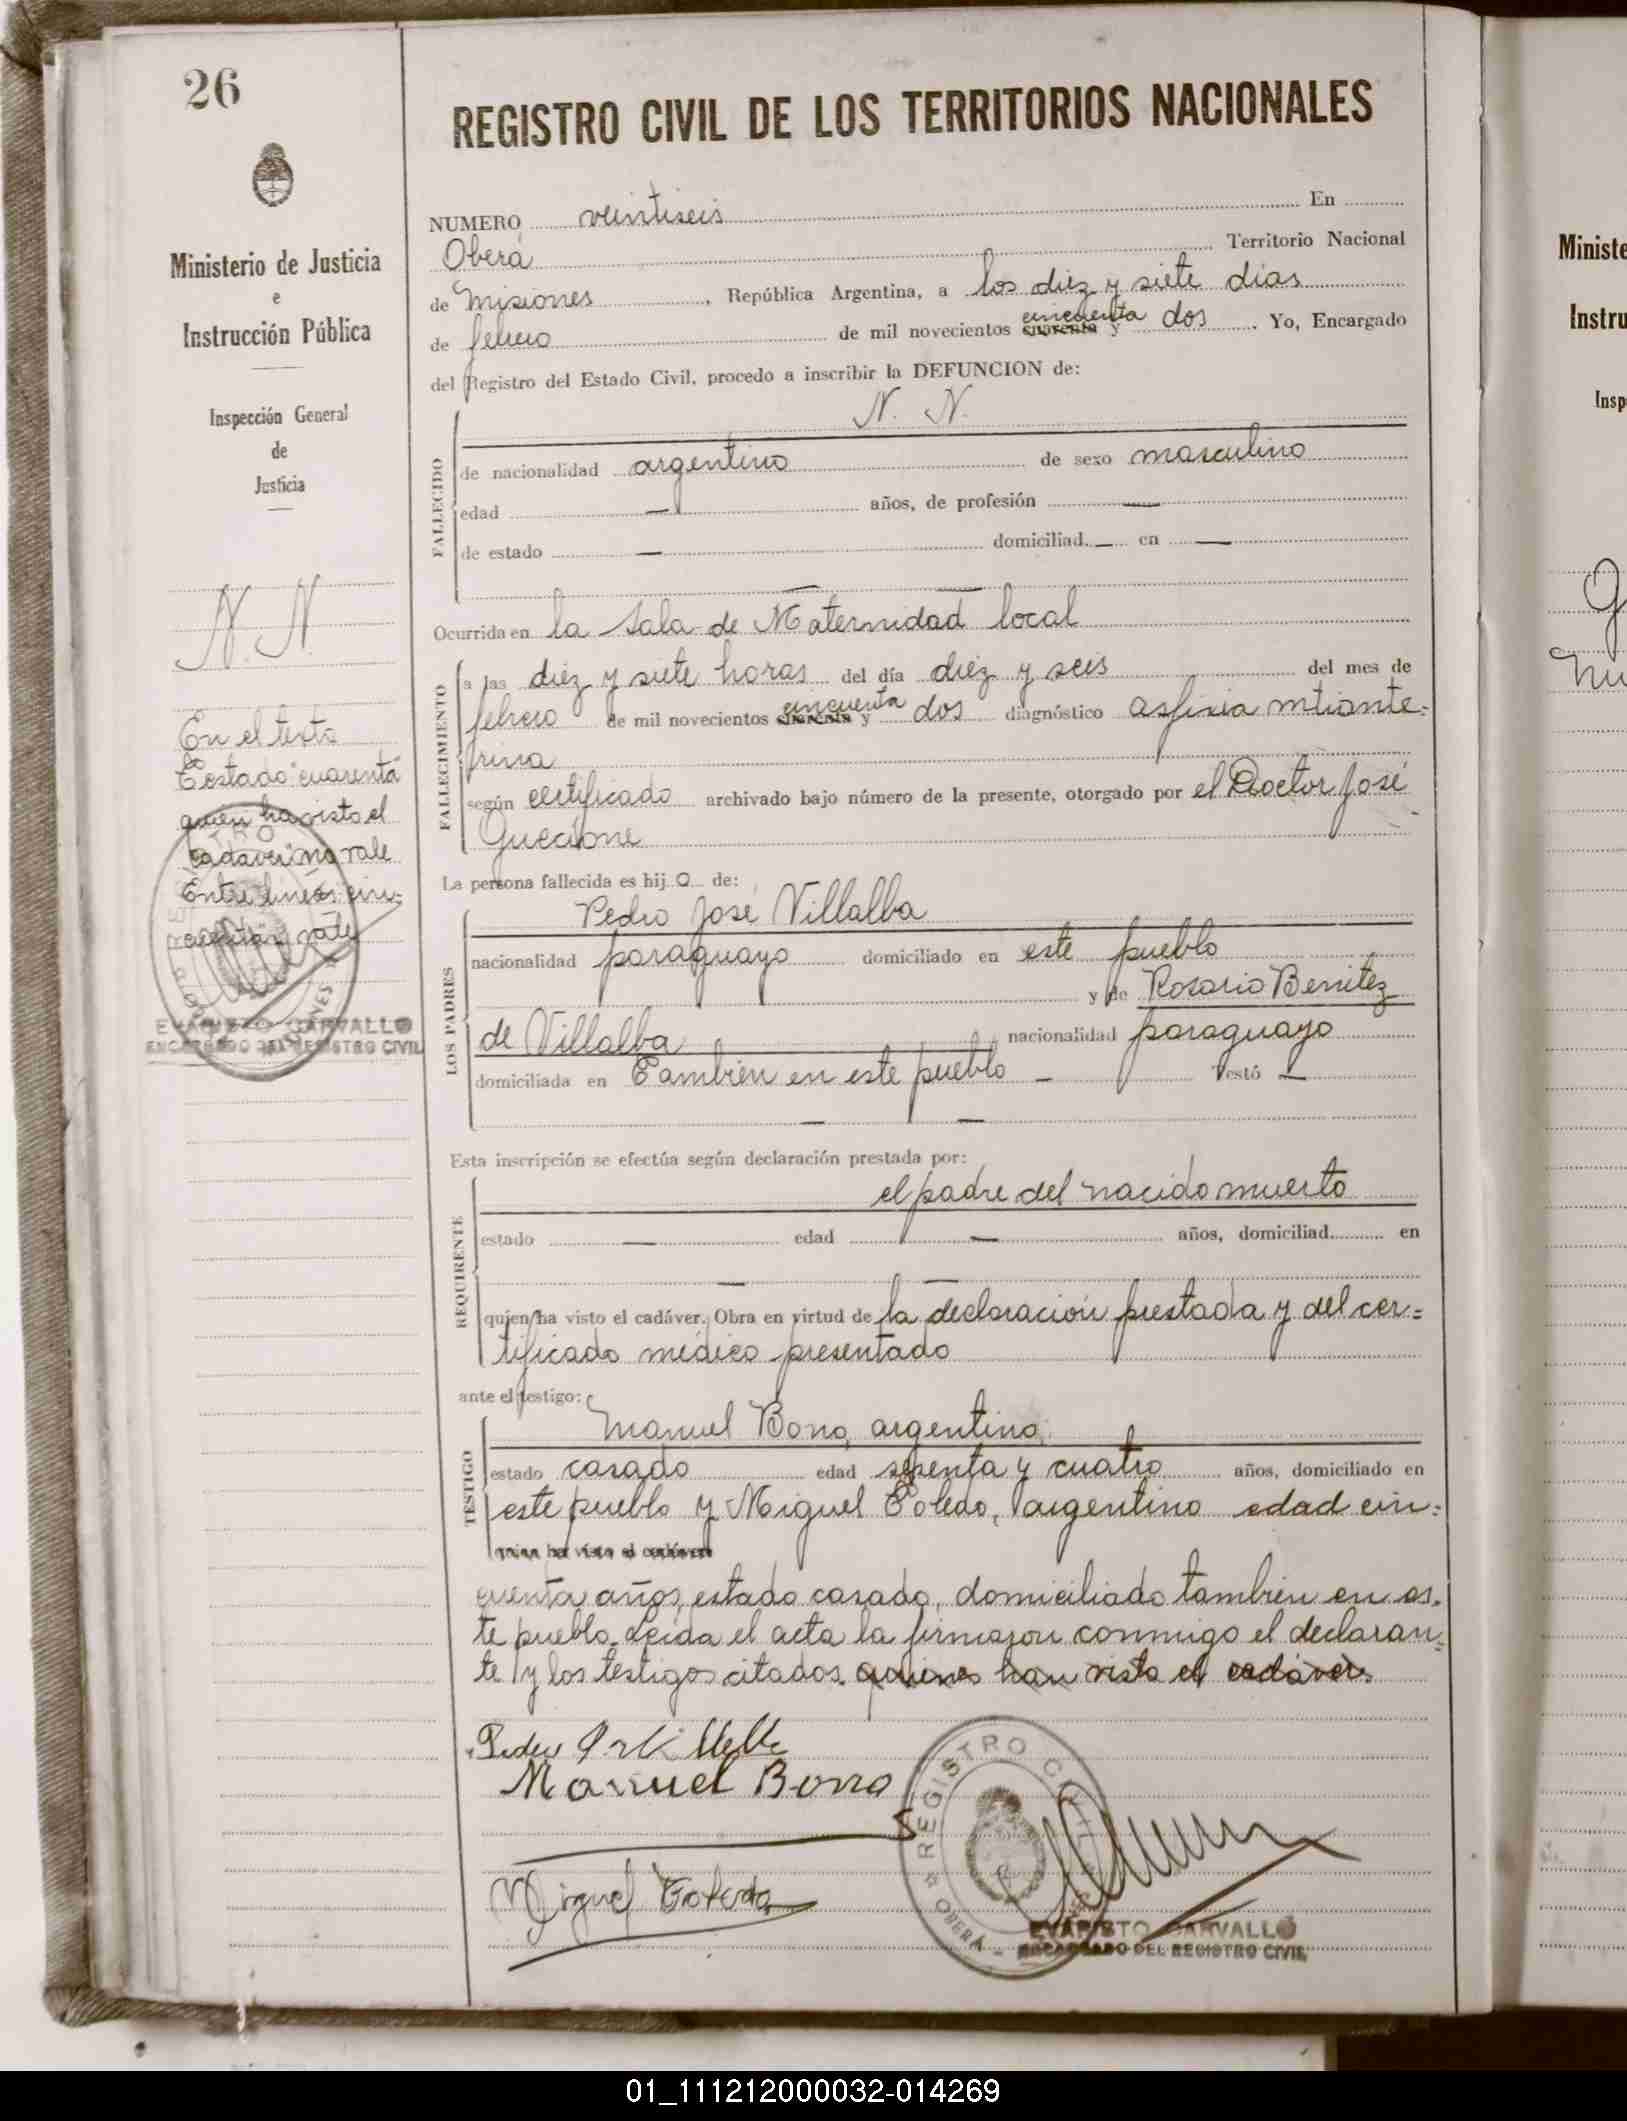 26
Ministerio de Justicia
e
Instrucción Pública
Inspección General
de
Justicia
N. N.
En el texto
Testado "cuarenta
quien ha visto el
cadaver" no vale
Entre lineas cin=
cuenta vale
EVARISTO CARVALLO
ENCARGADO DEL REGISTRO CIVIL
REGISTRO CIVIL DE LOS TERRITORIOS NACIONALES
NUMERO veintiseis En
Oberá Territorio Nacional
de Misiones, República Argentina, a los diez y siete dias
cincuenta
de febrero de mil novecientos cuarenta y dos. Yo, Encargado
del Registro del Estado Civil, procedo a inscribir la DEFUNCION de:
N. N.
FALLECIDO
de nacionalidad argentino de sexo masculino
edad — años, de profesión —
de estado — domiciliad — en —
Ocurrida en la Sala de Maternidad local
FALLECIMIENTO
a las diez y siete horas del día diez y seis del mes de
cincuenta
febrero de mil novecientos cuarenta y dos diagnóstico asfixia intrante=
rina
según certificado archivado bajo número de la presente, otorgado por el Doctor José
Guccione
La persona fallecida es hij o de:
LOS PADRES
Pedro José Villalba
nacionalidad paraguayo domiciliado en este pueblo
y de Rosario Benitez
de Villalba nacionalidad paraguayo
domiciliada en También en este pueblo — Testó —
— —
Esta inscripción se efectúa según declaración prestada por:
REQUIRENTE
el padre del nacido muerto
estado — edad — años, domiciliad en
— —
quien ha visto el cadáver. Obra en virtud de la declaración prestada y del cer=
tificado médico presentado
ante el testigo:
TESTIGO
Manuel Bono, argentino,
estado casado edad y cuatro años, domiciliado en
este pueblo y Miguel Toledo, argentino edad cin=
quien ha visto el cadáver
cuenta años, estado casado, domiciliado también en es=
te pueblo. Leida el acta la firmaron conmigo el declaran=
te y los testigos citados. quienes han visto el cadáver.
Manuel Bono
Miguel Toledo
REGISTRO CIVIL
OBERÁ
EVARISTO CARVALLO
ENCARGADO DEL REGISTRO CIVIL
Ministe
Instru
Insp
01_111212000032-014269